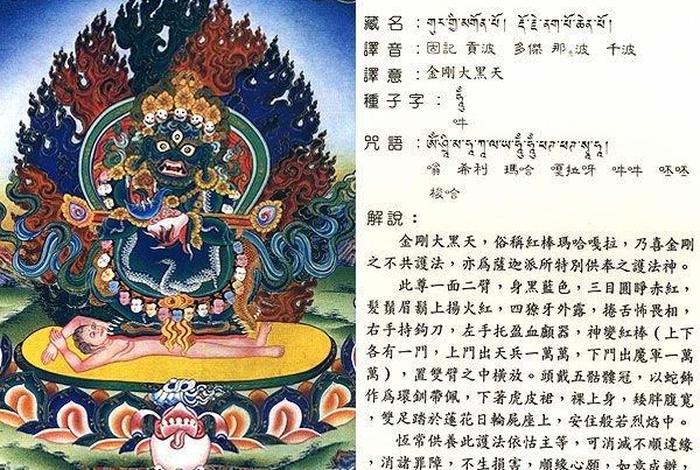 藏名：གུར་གྱི་མགོན་པོ། རྡོ་རྗེ་ནག་པོ་ཆེན་པོ།
譯音：固記 貢波 多傑 那波 千波
譯意：金剛大黑天
種子字：ཧཱུྃ
吽
咒語：ཨོཾ་ཤྲཱི་མ་ཧཱ་ཀཱ་ལ་ཡ་ཧཱུྃ་ཧཱུྃ་ཕཊ་ཕཊ་སྭཱ་ཧཱ།
嗡 希利 瑪哈 嘎拉呀 吽吽 呸呸
梭哈
解說：
金剛大黑天，俗稱紅棒瑪哈嘎拉，乃喜金剛
之不共護法，亦為薩迦派所特別供奉之護法神。
此尊一面二臂，身黑藍色，三目圓睜赤紅，
髮鬚眉鬍上揚火紅，四獠牙外露，捲舌怖畏相，
右手持鉤刀，左手托盈血顱器，神變紅棒（上下
各有一門，上門出天兵一萬萬，下門出魔軍一萬
萬），置雙臂之中橫放。頭戴五骷髏冠，以蛇飾
作為環釧帶佩，下著虎皮裙，裸上身，矮胖腹寬
，雙足踏於蓮花日輪屍座上，安住般若烈焰中。
恆常供養此護法依怙主等，可消減不順違緣
，消諸罪障，不生損害，順緣心願，如意成辦，